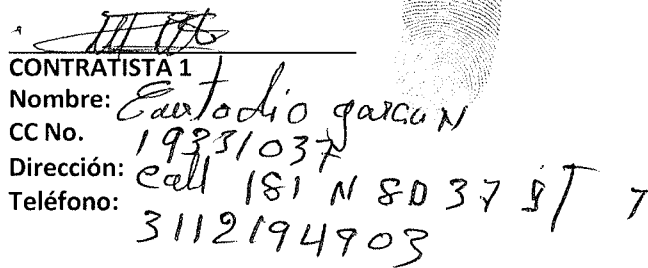 CONTRATISTA 1
Nombre: Eustodio garcon
CC No. 19331037
Dirección: Call 181 N 8D 37
Teléfono: 3112194903